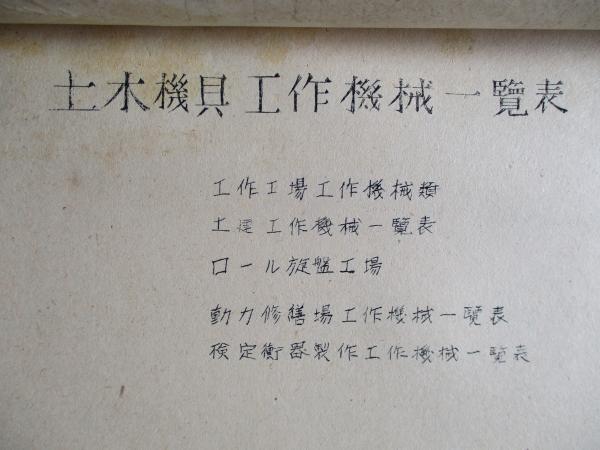 土木機具工作機械一覽表
工作工場工作機械類
土建工作機械一覽表
ロール旋盤工場
動力修繕場工作機械一覽表
検定衡器製作工作機械一覽表